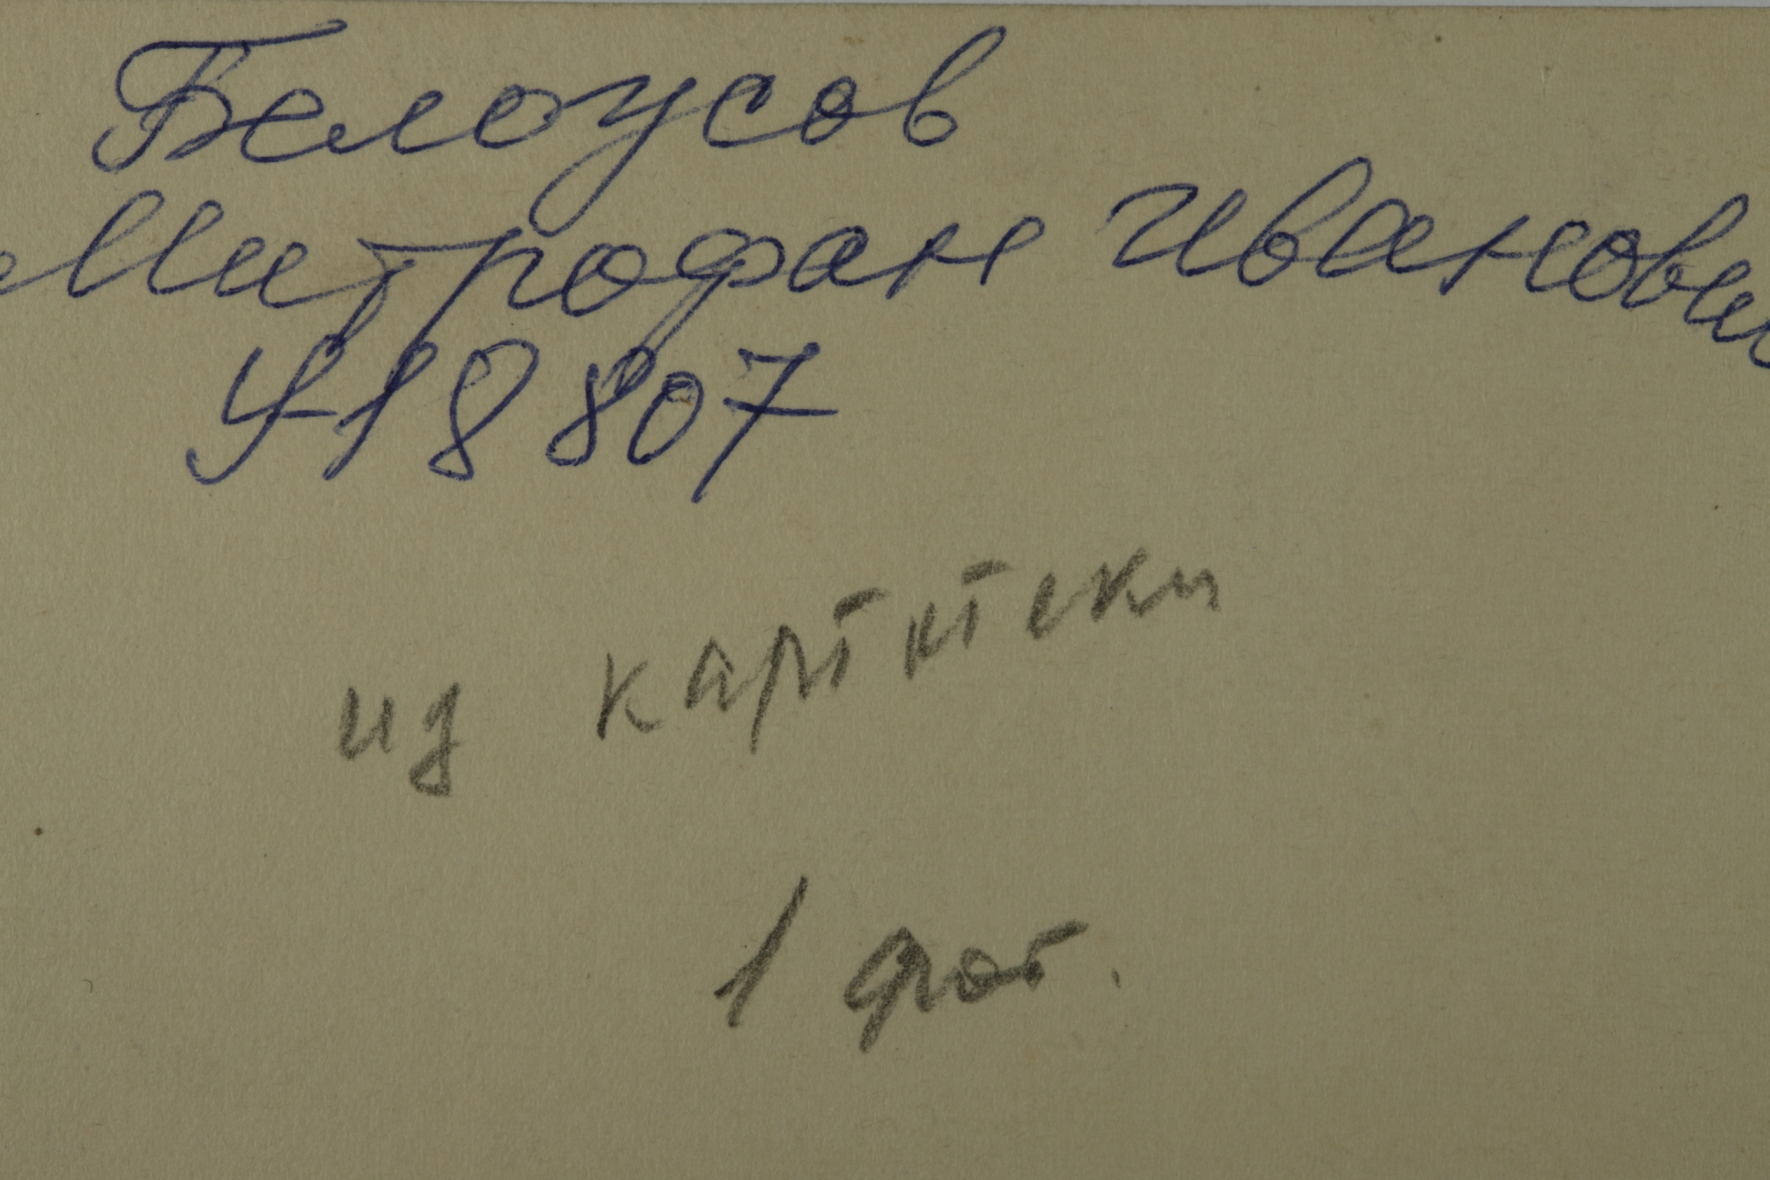 Белоусов
Митрофан Иванови
У18807
из картотеки
1 фот.